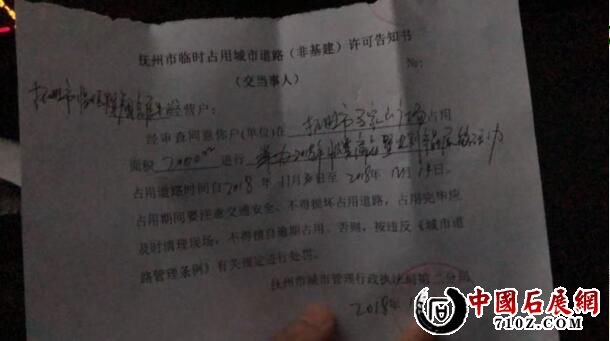 抚州市临时占用城市道路（非基建）许可告知书
（交当事人）
№：
抚州市 经营户：
经审查同意你户(单位)在 抚州市 广场 占用
面积 2000m² 进行 举办2018年 活动
占用道路时间自2018年11月30日至2018年12月19日。
占用期间要注意交通安全、不得损坏占用道路，占用完毕应
及时清理现场，不得擅自逾期占用。否则，按违反《城市道
路管理条例》有关规定进行处罚。
抚州市城市管理行政执法局第二分局
2018年
中國石展網
710Z.COM